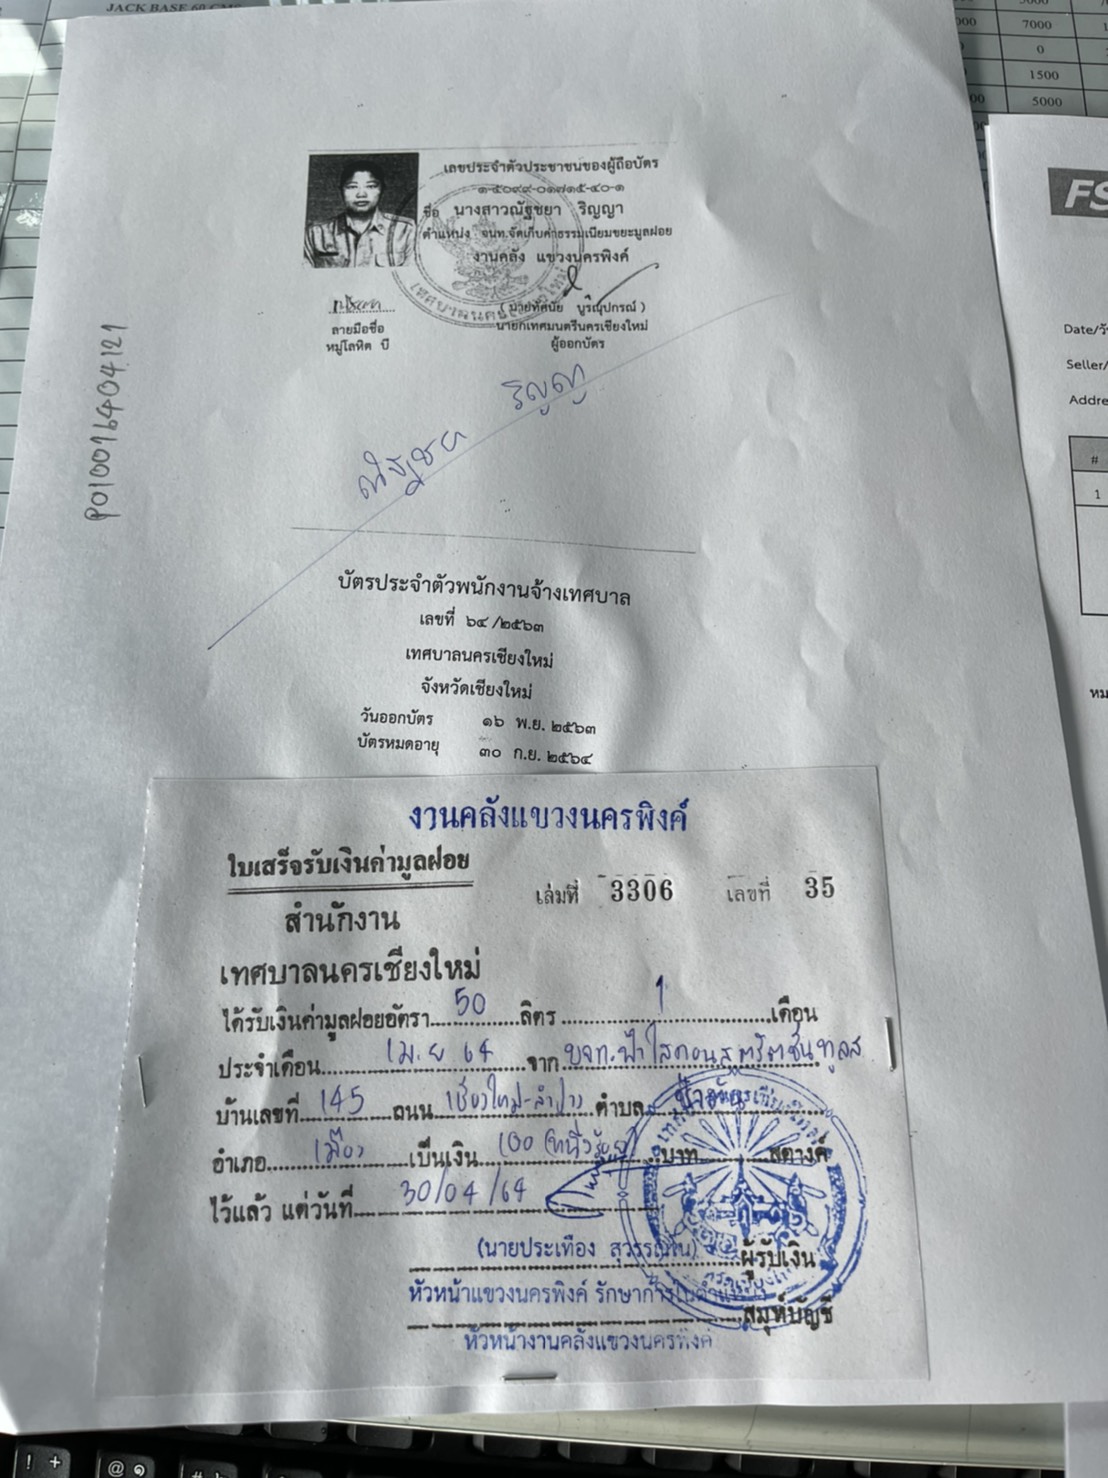 JACK BASE 60 CMS
7000
0
1500
5000
เลขประจำตัวประชาชนของผู้ถือบัตร
๑-๕๐๙๙-๐๑๗๑๕-๔๐-๑
ชื่อ นางสาวณัฐชยา ริญญา
ตำแหน่ง จนท.จัดเก็บค่าธรรมเนียมขยะมูลฝอย
งานคลัง แขวงนครพิงค์
(นายทัศนัย บูรณุปกรณ์)
ลายมือชื่อ
นายกเทศมนตรีนครเชียงใหม่
หมู่โลหิต บี
ผู้ออกบัตร
ณัฐชยา ริญญา
PO10016404121
บัตรประจำตัวพนักงานจ้างเทศบาล
เลขที่ ๖๔/๒๕๖๓
เทศบาลนครเชียงใหม่
จังหวัดเชียงใหม่
วันออกบัตร ๑๖ พ.ย. ๒๕๖๓
บัตรหมดอายุ ๓๐ ก.ย. ๒๕๖๔
งานคลังแขวงนครพิงค์
ใบเสร็จรับเงินค่ามูลฝอย
เล่มที่ 3306 เลขที่ 35
สำนักงาน
เทศบาลนครเชียงใหม่
ได้รับเงินค่ามูลฝอยอัตรา 50 ลิตร 1 เดือน
ประจำเดือน เม.ย 64 จาก บจก.ฟ้าใสคอนสตรัคชั่นทูลส
บ้านเลขที่ 145 ถนน เชียงใหม่-ลำปาง ตำบล ป่าตัน
อำเภอ เมือง เป็นเงิน 100 (หนึ่งร้อย) บาท สตางค์
ไว้แล้ว แต่วันที่ 30/04/64
(นายประเทือง สุวรรณ) ผู้รับเงิน
หัวหน้าแขวงนครพิงค์ รักษาการในตำแหน่ง
สมุห์บัญชี
หัวหน้างานคลังแขวงนครพิงค์
FS
Date/วั
Seller/
Addre
#
1
หม